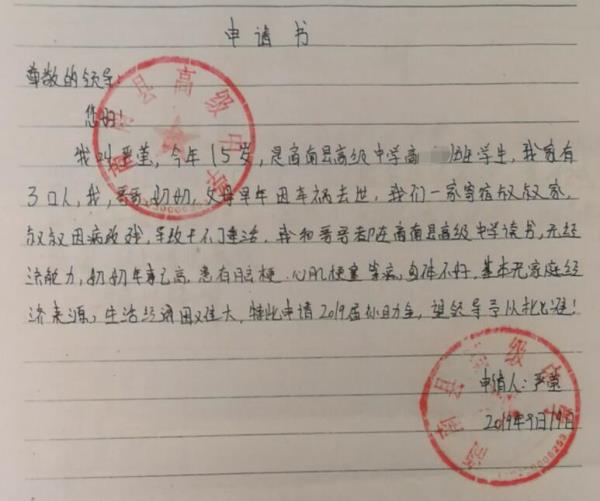 申请书
尊敬的领导:
您好!
我叫严莹,今年15岁,是商南县高级中学高 班学生,我家有
3口人,我,哥哥,奶奶,父母早年因车祸去世,我们一家寄宿叔叔家,
叔叔因病致残,导致干不了重活,我和哥哥都在商南县高级中学读书,无经
济能力,奶奶年事已高,患有脑梗、心肌梗塞等病,身体不好,基本无家庭经
济来源,生活经济困难大,特此申请2019届 助金,望领导予以批准!
申请人:严莹
2019年9月19日
商南县高级中学
商南县高级中学